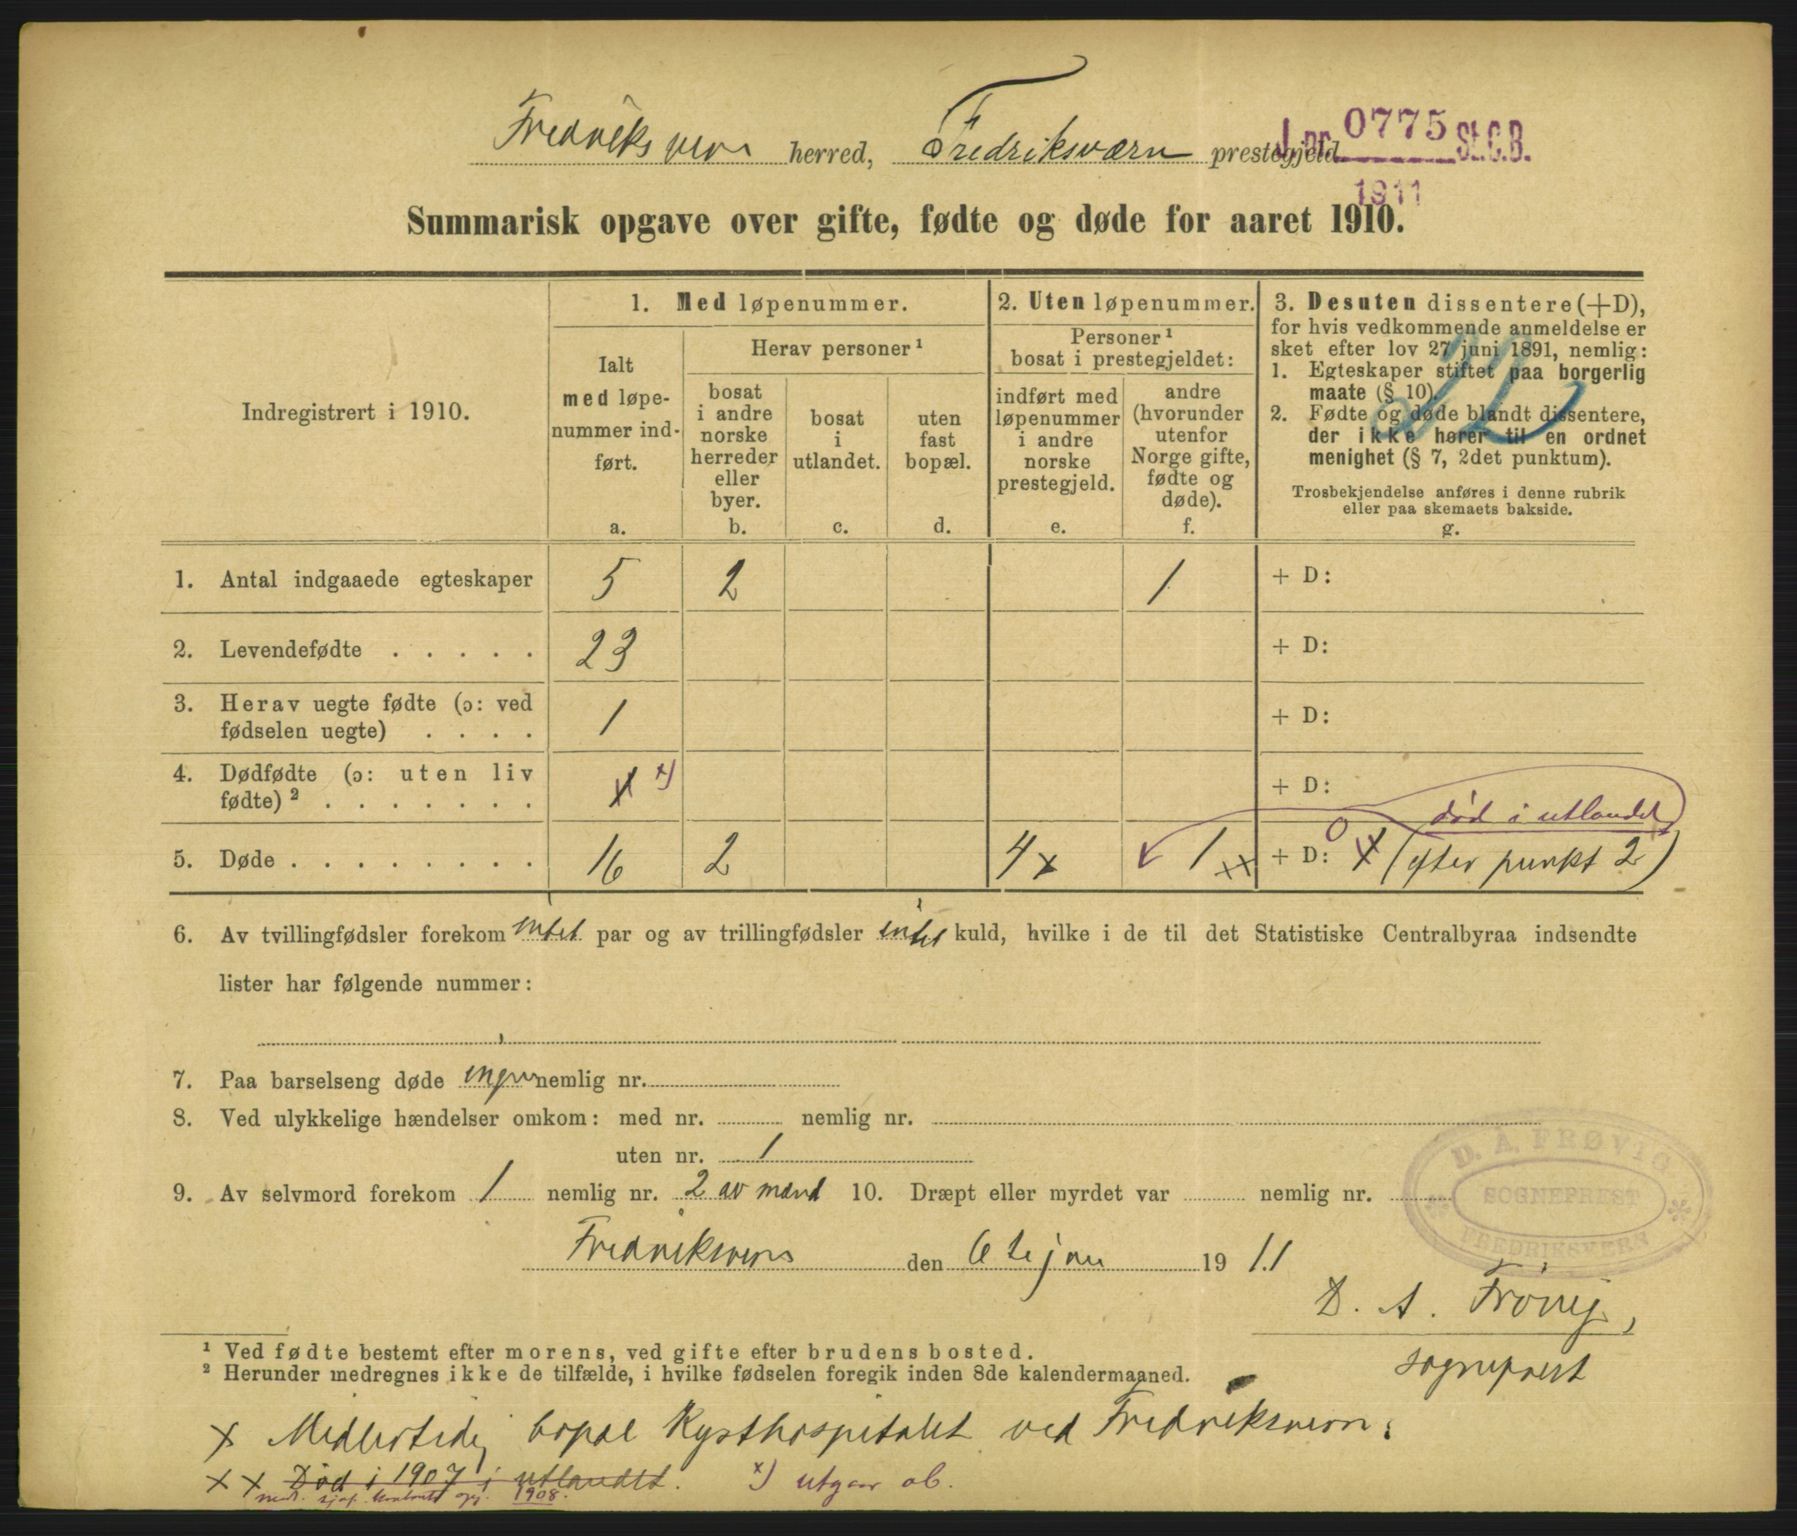 Fredriksvern herred, Fredriksværn prestegjeld
J.nr. 0775 St.C.B.
1911
Summarisk opgave over gifte, fødte og døde for aaret 1910.
Indregistrert i 1910.
1. Med løpenummer.
Ialt
med løpe-
nummer ind-
ført.
a.
Herav personer¹
bosat
i andre
norske
herreder
eller
byer.
b.
bosat
i
utlandet.
c.
uten
fast
bopæl.
d.
2. Uten løpenummer.
Personer¹
bosat i prestegjeldet:
indført med
løpenummer
i andre
norske
prestegjeld.
e.
andre
(hvorunder
utenfor
Norge gifte,
fødte og
døde).
f.
3. Desuten dissentere (+D),
for hvis vedkommende anmeldelse er
sket efter lov 27 juni 1891, nemlig:
1. Egteskaper stiftet paa borgerlig
maate (§ 10).
2. Fødte og døde blandt dissentere,
der ikke hører til en ordnet
menighet (§ 7, 2det punktum).
Trosbekjendelse anføres i denne rubrik
eller paa skemaets bakside.
g.
1. Antal indgaaede egteskaper 5 2 1 + D:
2. Levendefødte . . . . . 23 + D:
3. Herav uegte fødte (ɔ: ved
fødselen uegte) . . . . 1 + D:
4. Dødfødte (ɔ: uten liv
fødte)² . . . . . . . 1 x) + D:
død i utlandet
5. Døde . . . . . . . . 16 2 4 x 1 xx + D: 0 1 (efter punkt 2)
6. Av tvillingfødsler forekom intet par og av trillingfødsler intet kuld, hvilke i de til det Statistiske Centralbyraa indsendte
lister har følgende nummer:
7. Paa barselseng døde ingen nemlig nr.
8. Ved ulykkelige hændelser omkom: med nr. nemlig nr.
uten nr. 1
9. Av selvmord forekom 1 nemlig nr. 2 av mænd 10. Dræpt eller myrdet var nemlig nr.
D. A. FRØVIG
SOGNEPREST
FREDRIKSVERN
Fredriksvern den 6te jan 1911
D. A. Frøvig,
sogneprest
¹ Ved fødte bestemt efter morens, ved gifte efter brudens bosted.
² Herunder medregnes ikke de tilfælde, i hvilke fødselen foregik inden 8de kalendermaaned.
x Midlertidig bopæl Kysthospitalet ved Fredriksvern.
xx Død i 1907 i utlandet. x) utgaar ab.
1908.